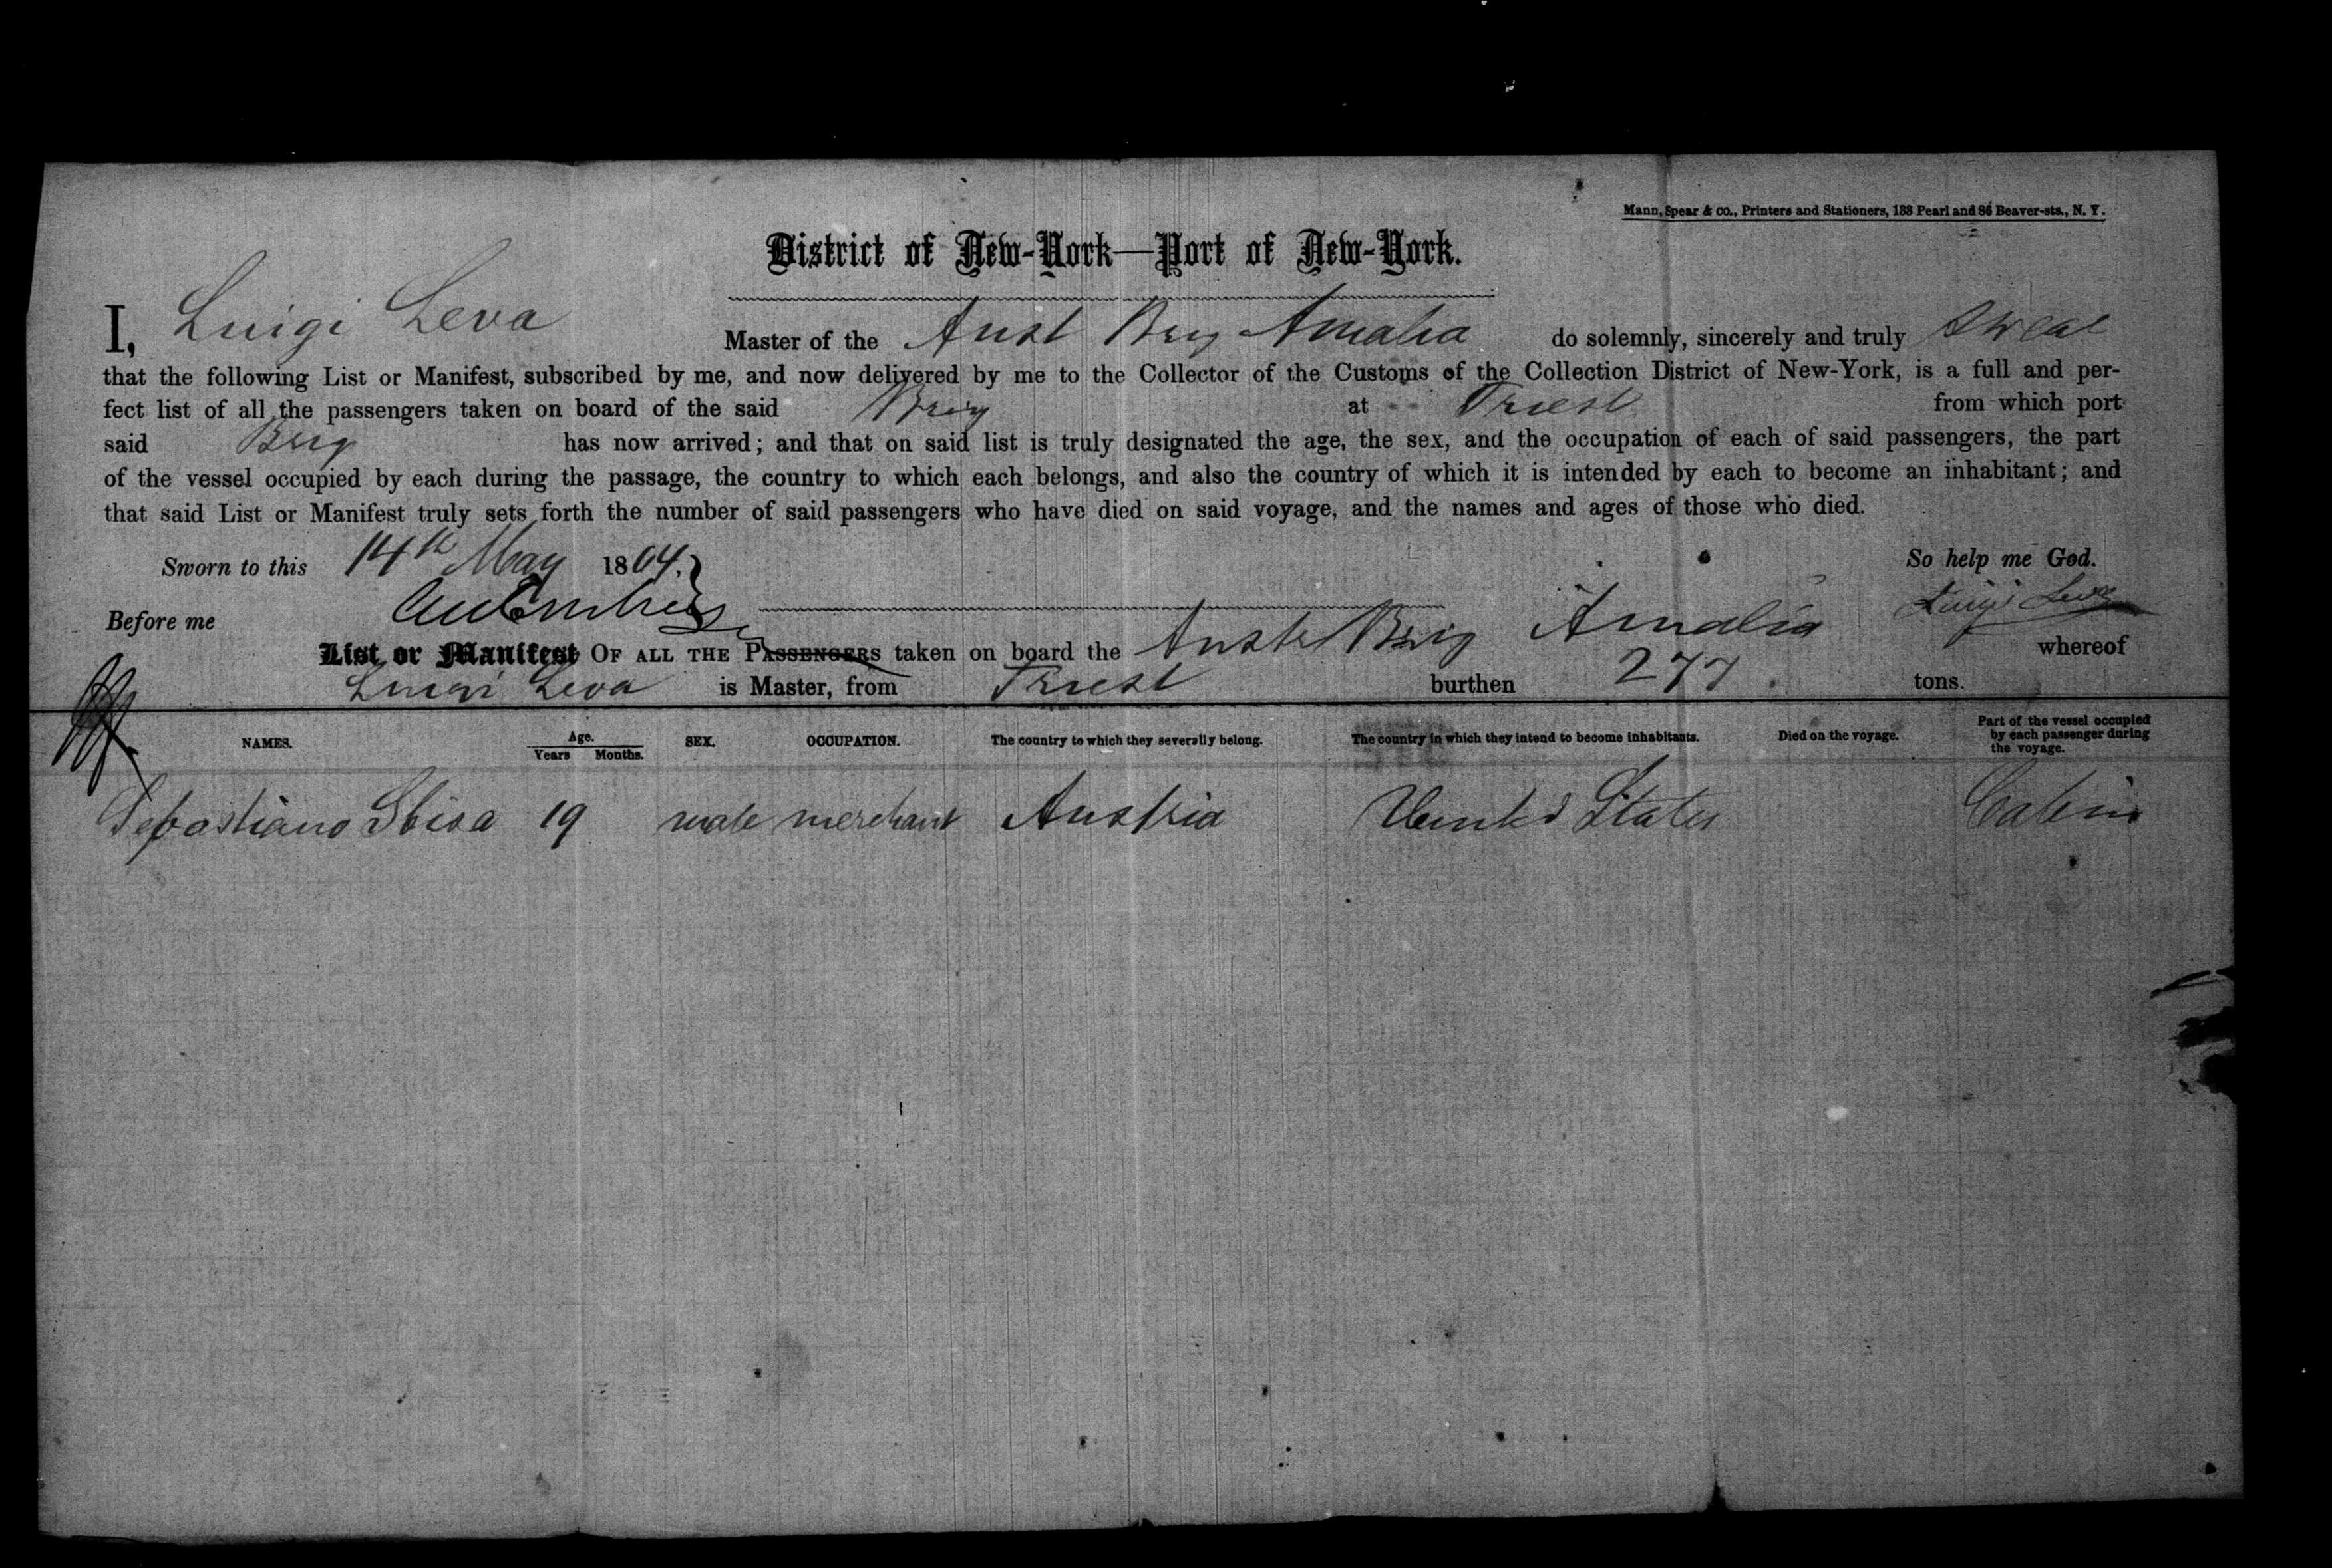 Mann, Spear & co., Printers and Stationers, 188 Pearl and 86 Beaver-sts., N. Y.
District of New-York—Port of New-York.
I, Luigi Leva Master of the Aust Brig Amalia do solemnly, sincerely and truly swear
that the following List or Manifest, subscribed by me, and now delivered by me to the Collector of the Customs of the Collection District of New-York, is a full and per-
fect list of all the passengers taken on board of the said Brig at Triest from which port
said Brig has now arrived; and that on said list is truly designated the age, the sex, and the occupation of each of said passengers, the part
of the vessel occupied by each during the passage, the country to which each belongs, and also the country of which it is intended by each to become an inhabitant; and
that said List or Manifest truly sets forth the number of said passengers who have died on said voyage, and the names and ages of those who died.
Sworn to this 14th May 1864. So help me God.
Before me Luigi Leva
List or Manifest OF ALL THE PASSENGERS taken on board the Brig Amalia whereof
Luigi Leva is Master, from Triest burthen 277 tons.
NAMES. Age. Years Months. SEX. OCCUPATION. The country to which they severally belong. The country in which they intend to become inhabitants. Died on the voyage. Part of the vessel occupied by each passenger during the voyage.
Sebastiano Sbisa 19 male merchant Austria United States Cabin